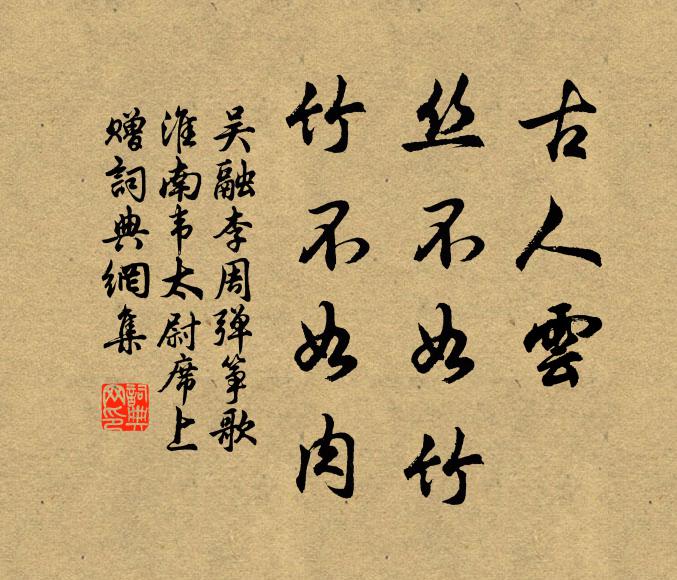 古人雲
丝不如竹
竹不如肉
吴融李周弹筝歌
淮南韦太尉席上
赠詞典網集
詞典网印